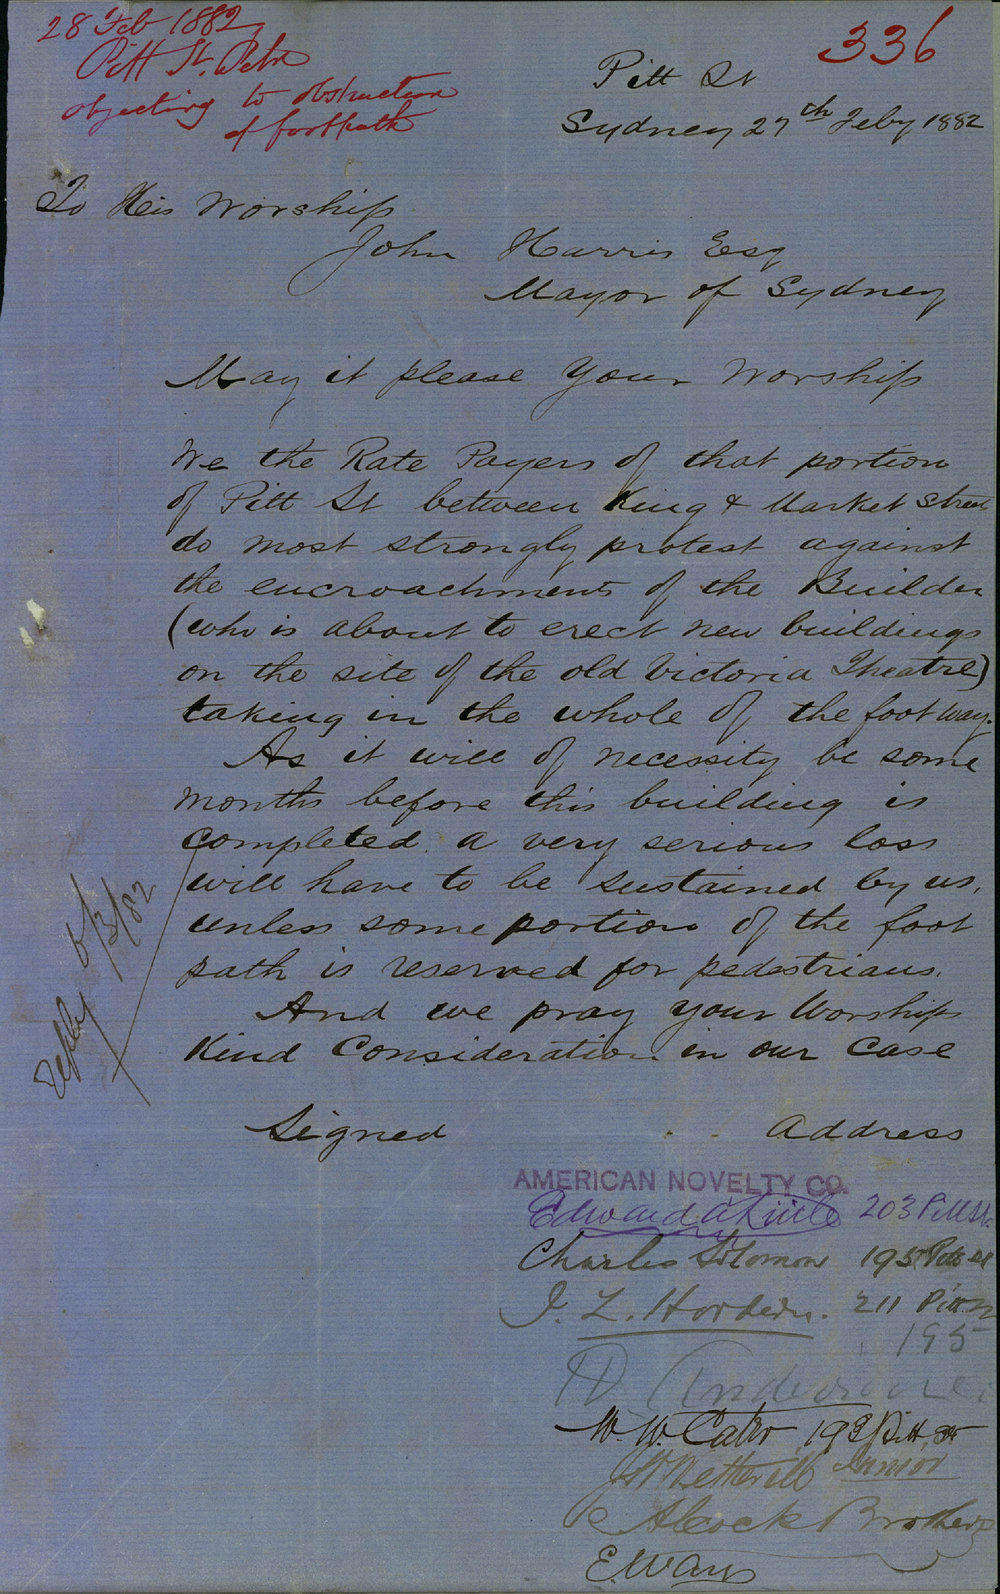 28 Feb 1882
Pitt St. Petn
objecting to obstruction
of footpath
336
Pitt St
Sydney 27th Feby 1882
To His Worship
John Harris Esq
Mayor of Sydney
May it please Your Worship
We the Rate Payers of that portion
of Pitt St between King & Market Street
do most strongly protest against
the encroachments of the Builder
(who is about to erect new buildings
on the site of the old Victoria Theatre)
taking in the whole of the foot way.
As it will of necessity be some
months before this building is
completed a very serious loss
will have to be sustained by us,
unless some portion of the foot
path is reserved for pedestrians.
And we pray your Worships
Kind Consideration in our Case
Reply 6/3/82
Signed Address
AMERICAN NOVELTY CO.
Edward a Little 203 Pitt St.
Charles Solomon 195 Pitt St
J. L. Hordern. 211 Pitt St
195
D Anderson
W. W. Cato 193 Pitt St
Wetherill Junior
Alcock Brothers
E Way